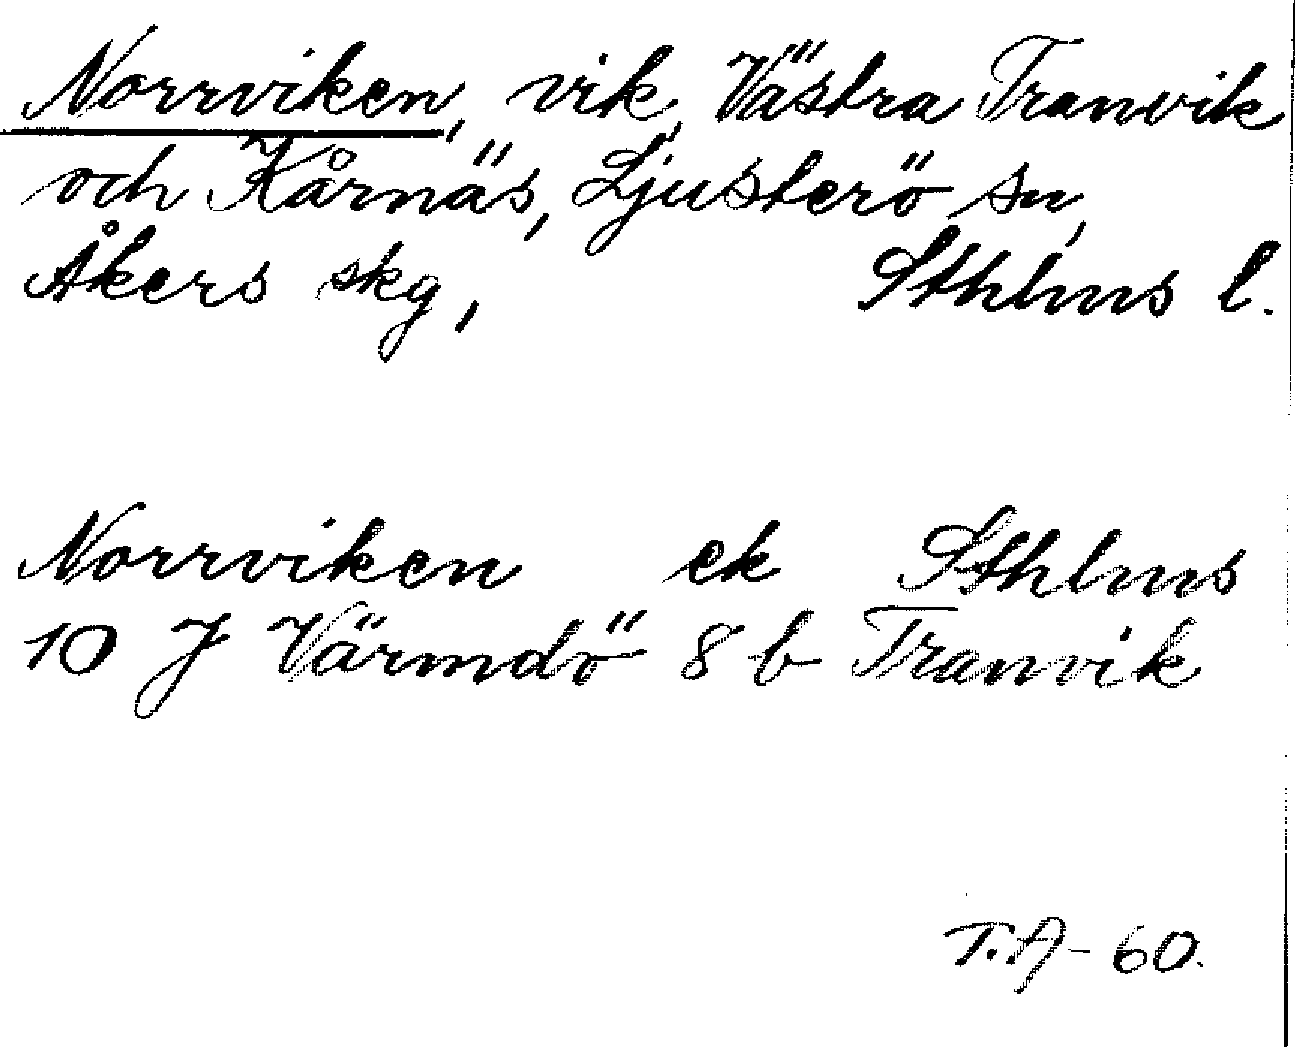 Norrviken, vik, Västra Tranvik
och Kårnäs, Ljusterö sn,
Åkers skg, Sthlms l.
Norrviken ek Sthlms
10 J Värmdö 8 b Tranvik
T.A-60.